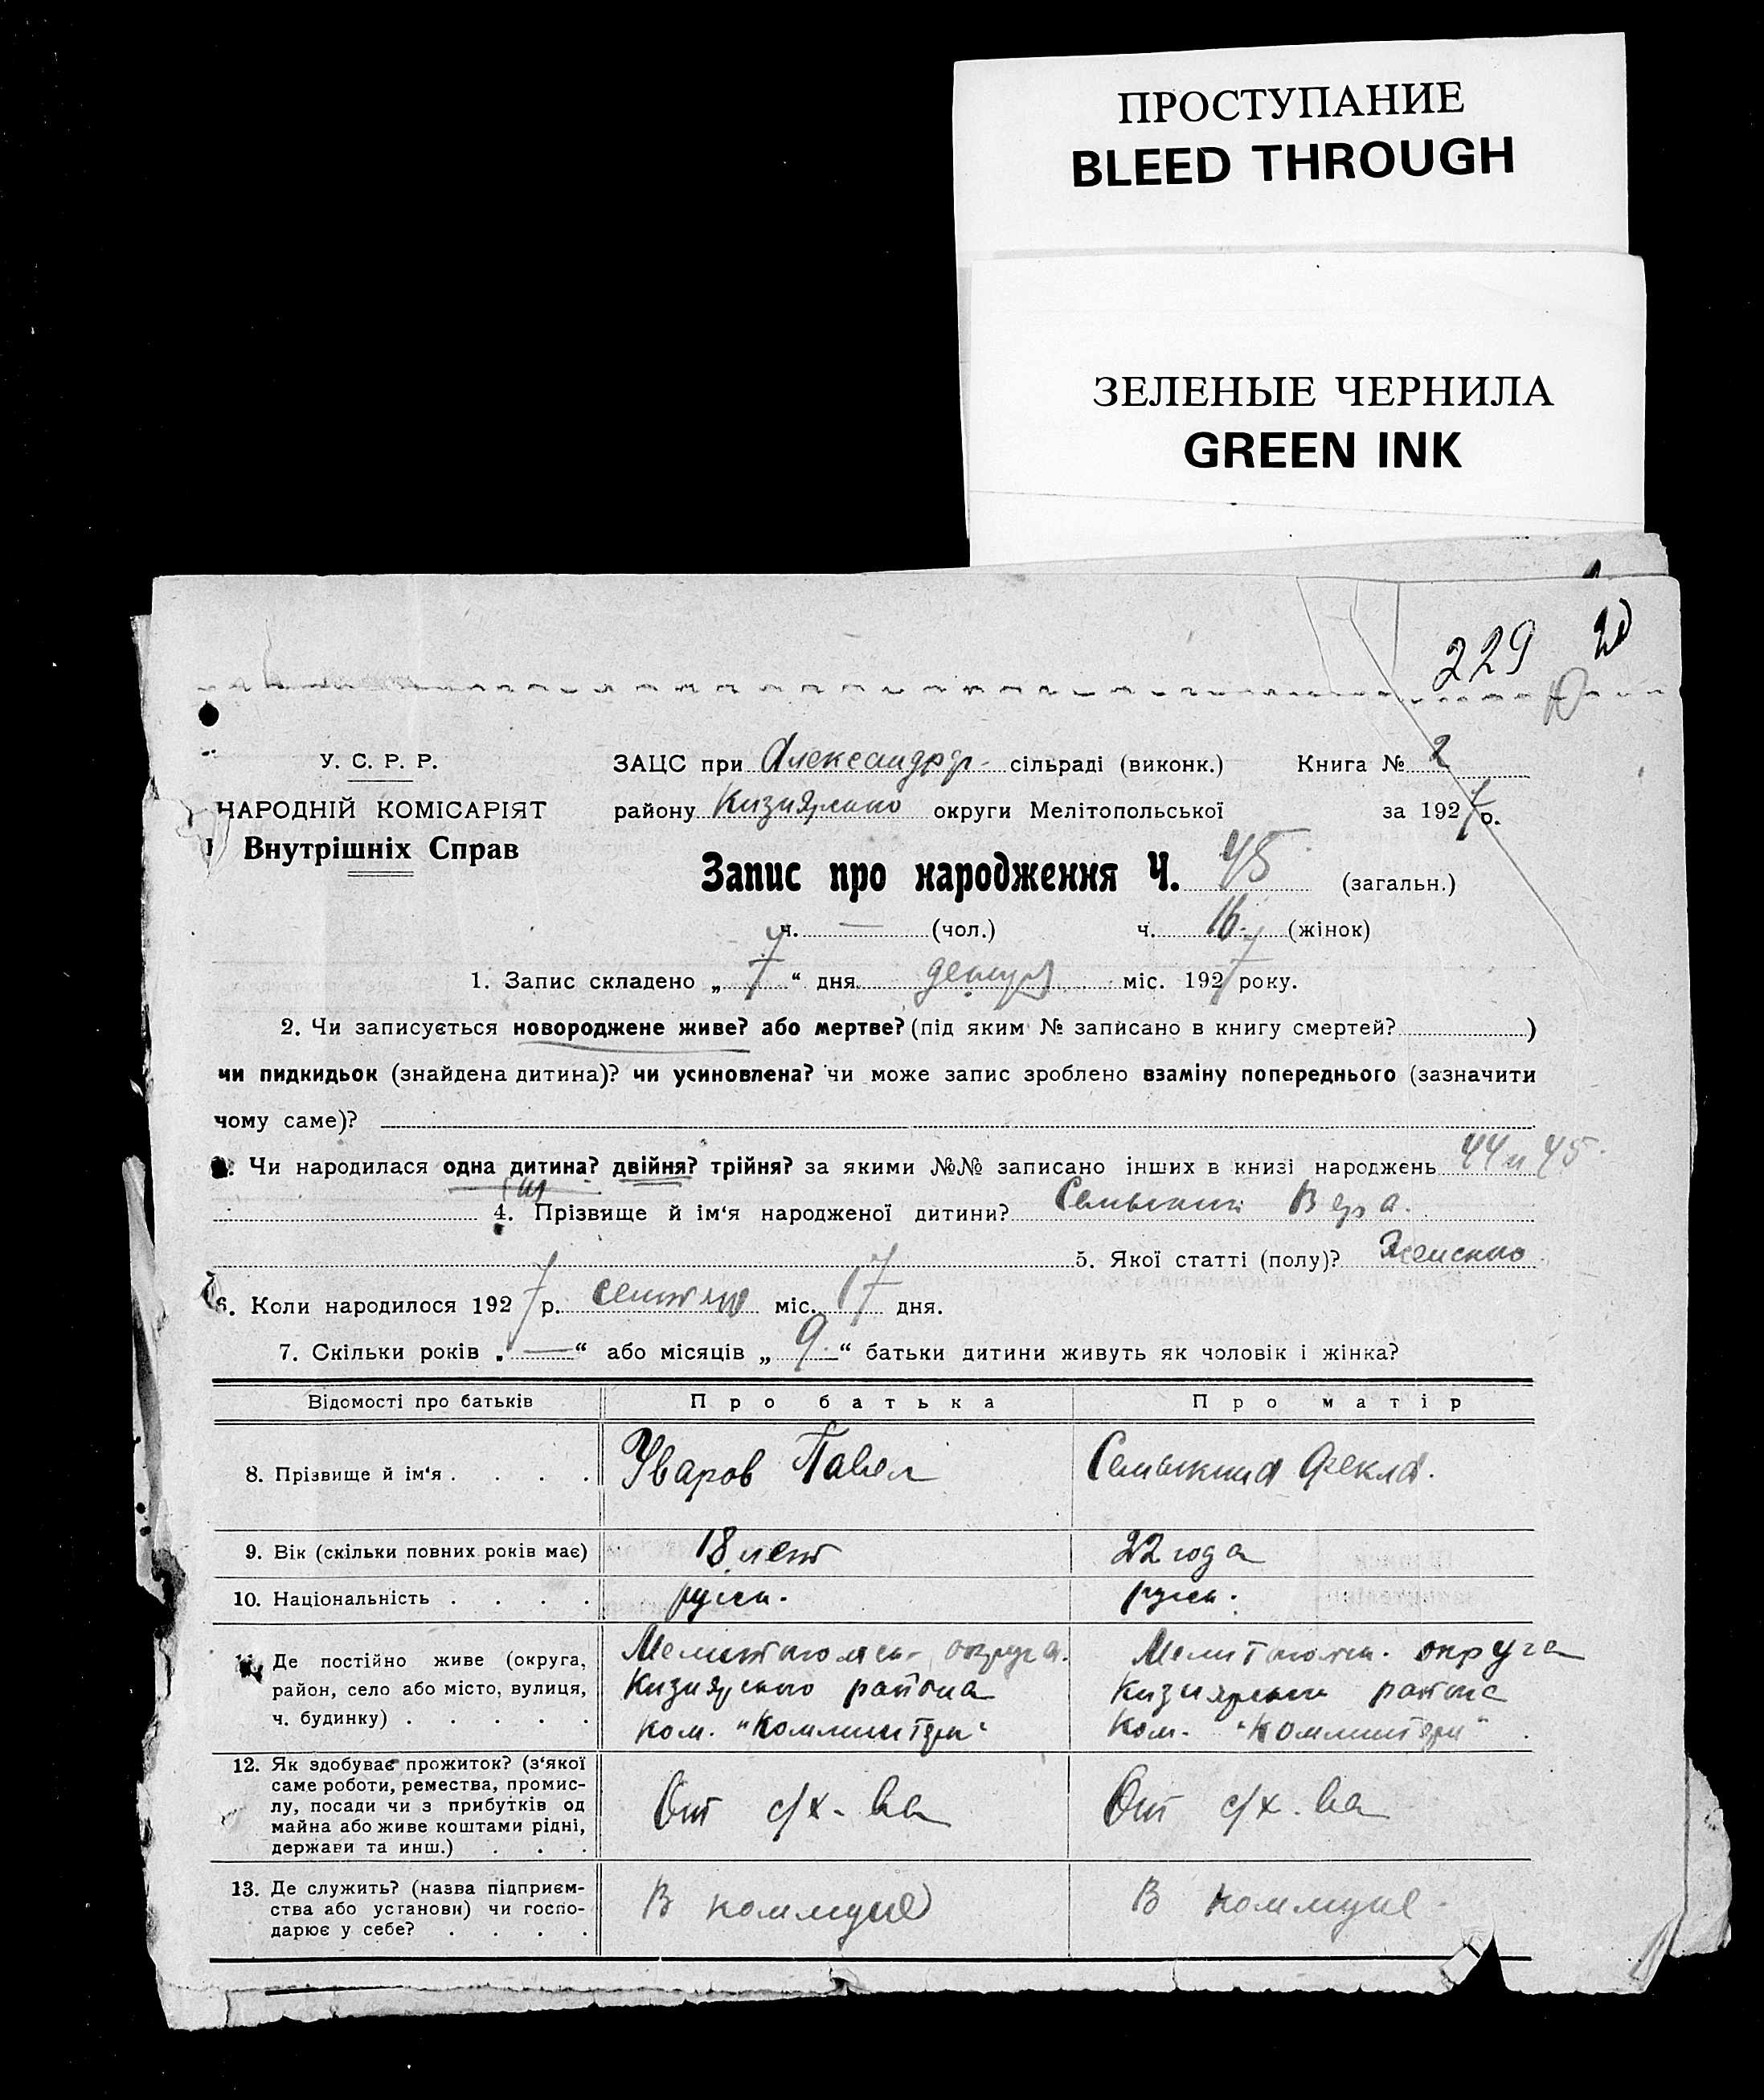 ПРОСТУПАНИЕ
BLEED THROUGH
ЗЕЛЕНЫЕ ЧЕРНИЛА
GREEN INK
229
У. С. Р. Р.
НАРОДНІЙ КОМІСАРІЯТ
Внутрішніх Справ
ЗАЦС при Александр. сільраді (виконк.) Книга № 2
району Кизиярского округи Мелітопольської за 1927 р.
Запис про народження Ч. 45 (загальн.)
ч. — (чол.) ч. 16 (жінок)
1. Запис складено „ 7 “ дня міс. 1927 року.
2. Чи записується новороджене живе? або мертве? (під яким № записано в книгу смертей? )
чи пидкидьок (знайдена дитина)? чи усиновлена? чи може запис зроблено взаміну попереднього (зазначити
чому саме)?
Чи народилася одна дитина? двійня? трійня? за якими №№ записано інших в книзі народжень 44 и 45
4. Прізвище й ім‘я народженої дитини? Вера.
5. Якої статті (полу)? Женского
6. Коли народилося 1927 р. сентяб міс. 17 дня.
7. Скільки років „ — “ або місяців „ 9 “ батьки дитини живуть як чоловік і жінка?
Відомості про батьків Про батька Про матір
8. Прізвище й ім‘я . . . . Уваров Павел Фекла.
9. Вік (скільки повних років має) 18 лет 22 года
10. Національність . . . . русск. русск.
Де постійно живе (округа,
район, село або місто, вулиця,
ч. будинку) . . . . .
Мелитопольск. округа. Мелитопольск. округа
Кизиярского района Кизиярского района
ком. "Коминтерн" Ком. "Коминтерн"
12. Як здобуває прожиток? (з‘якої
саме роботи, ремества, промис-
лу, посади чи з прибутків од
майна або живе коштами рідні,
держави та инш.) . . .
От с/х-ва От с/х.ва
13. Де служить? (назва підприєм-
ства або установи) чи госпо-
дарює у себе? . . . .
В коммуне В коммуне